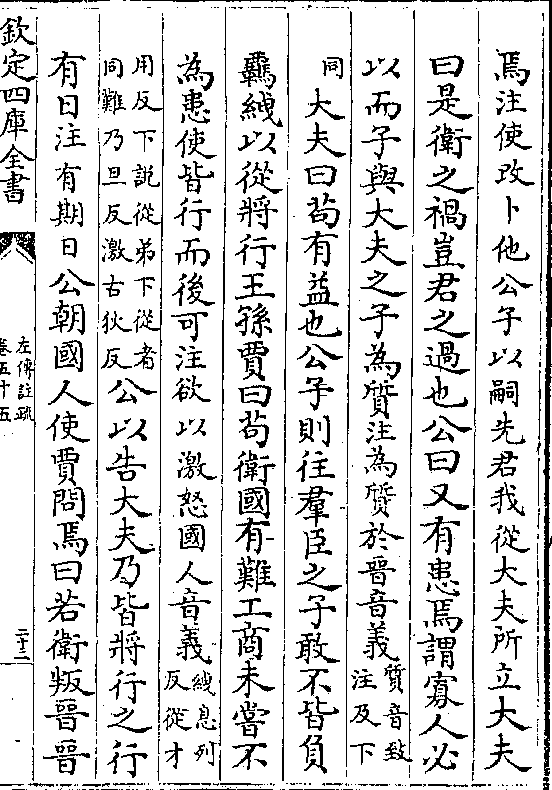 焉注使改卜他公子以嗣先君我從大夫所立大夫
曰是衛之禍豈君之過也公曰又有患焉謂寡人必
以而子與大夫之子為質注為質於晉音義質音致注及下
同大夫曰苟有益也公子則往羣臣之子敢不皆負
羈絏以從將行王孫賈曰苟衛國有難工商未嘗不
為患使皆行而後可注欲以激怒國人音義絏息列反從才
用反下說從弟下從者同難乃旦反激古狄反公以告大夫乃皆將行之行
有日注有期日公朝國人使賈問焉曰若衛叛晉晉
欽定四庫全書
左傳註疏
卷五十五
二十二